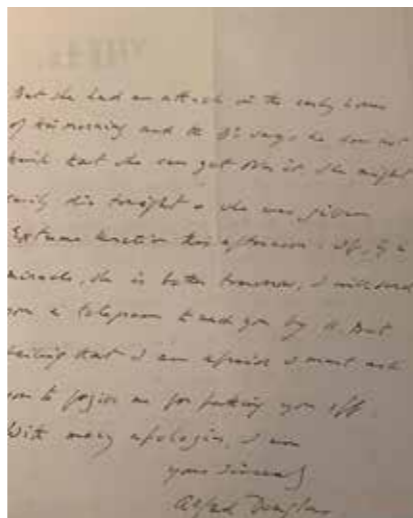 But she had an attack in the early hours
of this morning and the Dr says he does not
think that she can get over it. She might
easily die tonight & she was given
Extreme Unction this afternoon. If, by a
miracle, she is better tomorrow, I will send
you a telegram to you by it. But
failing that I am afraid I must ask
you to forgive me for putting you off.
With many apologies, I am
yours sincerely
Alfred Douglas